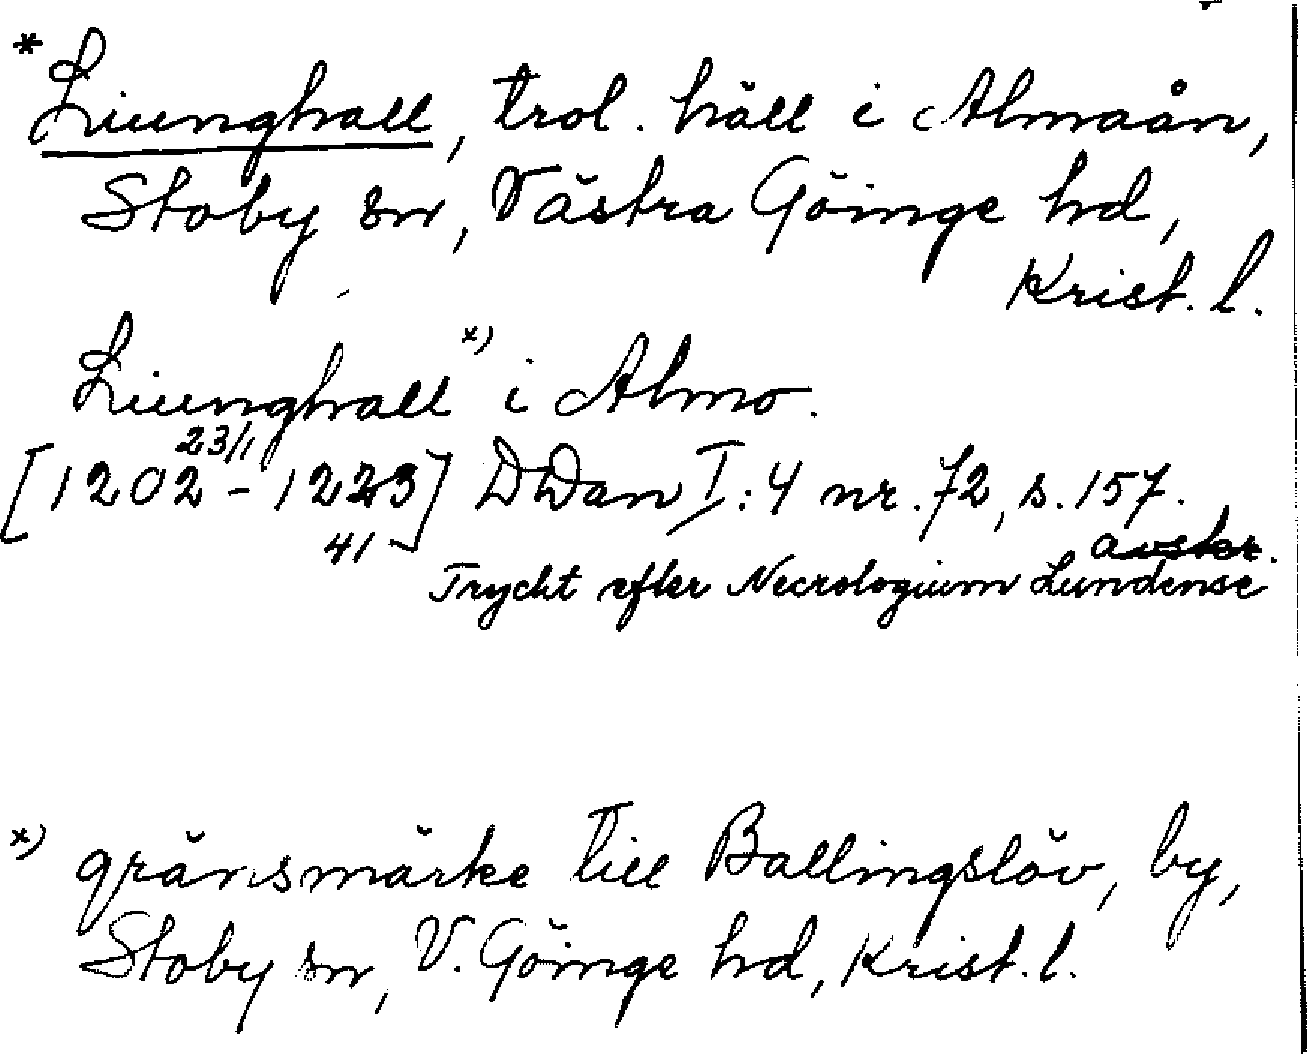 *
Liunghall, trol. häll i Almaån,
Stoby sn, Västra Göinge hd,
Krist. l.
Liunghall x) i Almo.
23/1
[1202 - 1223] DDan I:4 nr. 72, s. 157.
41 avskr.
Tryckt efter Necrologium Lundense
x) gränsmärke till Ballingslöv, by,
Stoby sn, V. Göinge hd, Krist. l.